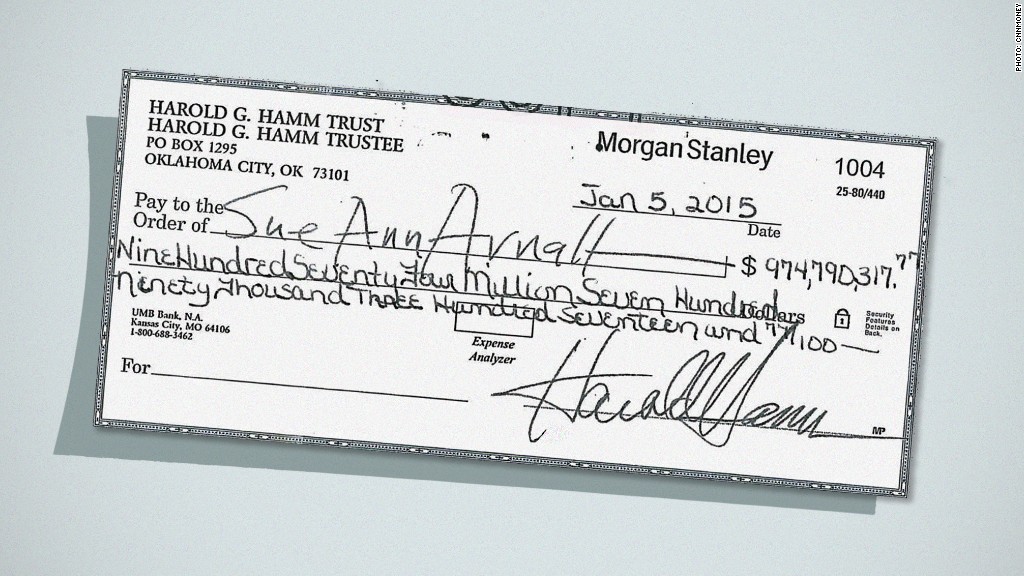 PHOTO: CNNMONEY
HAROLD G. HAMM TRUST
HAROLD G. HAMM TRUSTEE
PO BOX 1295
OKLAHOMA CITY, OK 73101
Morgan Stanley
1004
25-80/440
Jan 5, 2015
Date
Pay to the
Order of Sue Ann Arnall
$ 974,790,317.77
Nine Hundred Seventy Four Million Seven Hundred Dollars
Ninety Thousand Three Hundred Seventeen and 77/100
Security
Features
Details on
Back.
UMB Bank, N.A.
Kansas City, MO 64106
1-800-688-3462
Expense
Analyzer
For
Harold Hamm
MP